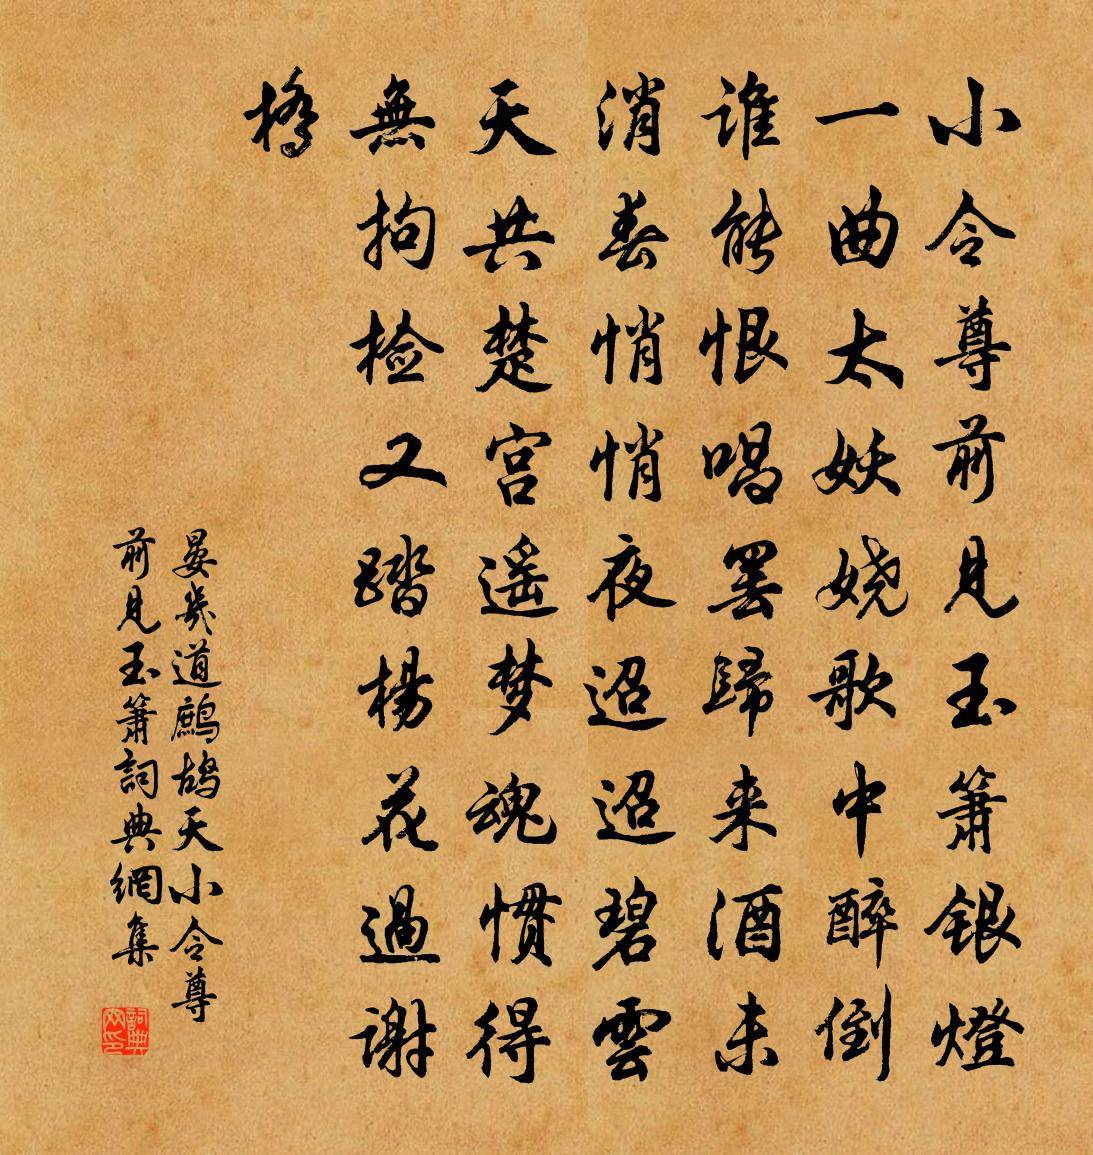 小令尊前見玉簫銀燈
一曲太妖娆歌中醉倒
谁能恨唱罢歸来酒未
消春悄悄夜迢迢碧雲
天共楚宫遥梦魂惯得
無拘检又踏楊花過谢
橋
晏幾道鷓鴣天小令尊
前見玉簫詞典網集
詞典網印